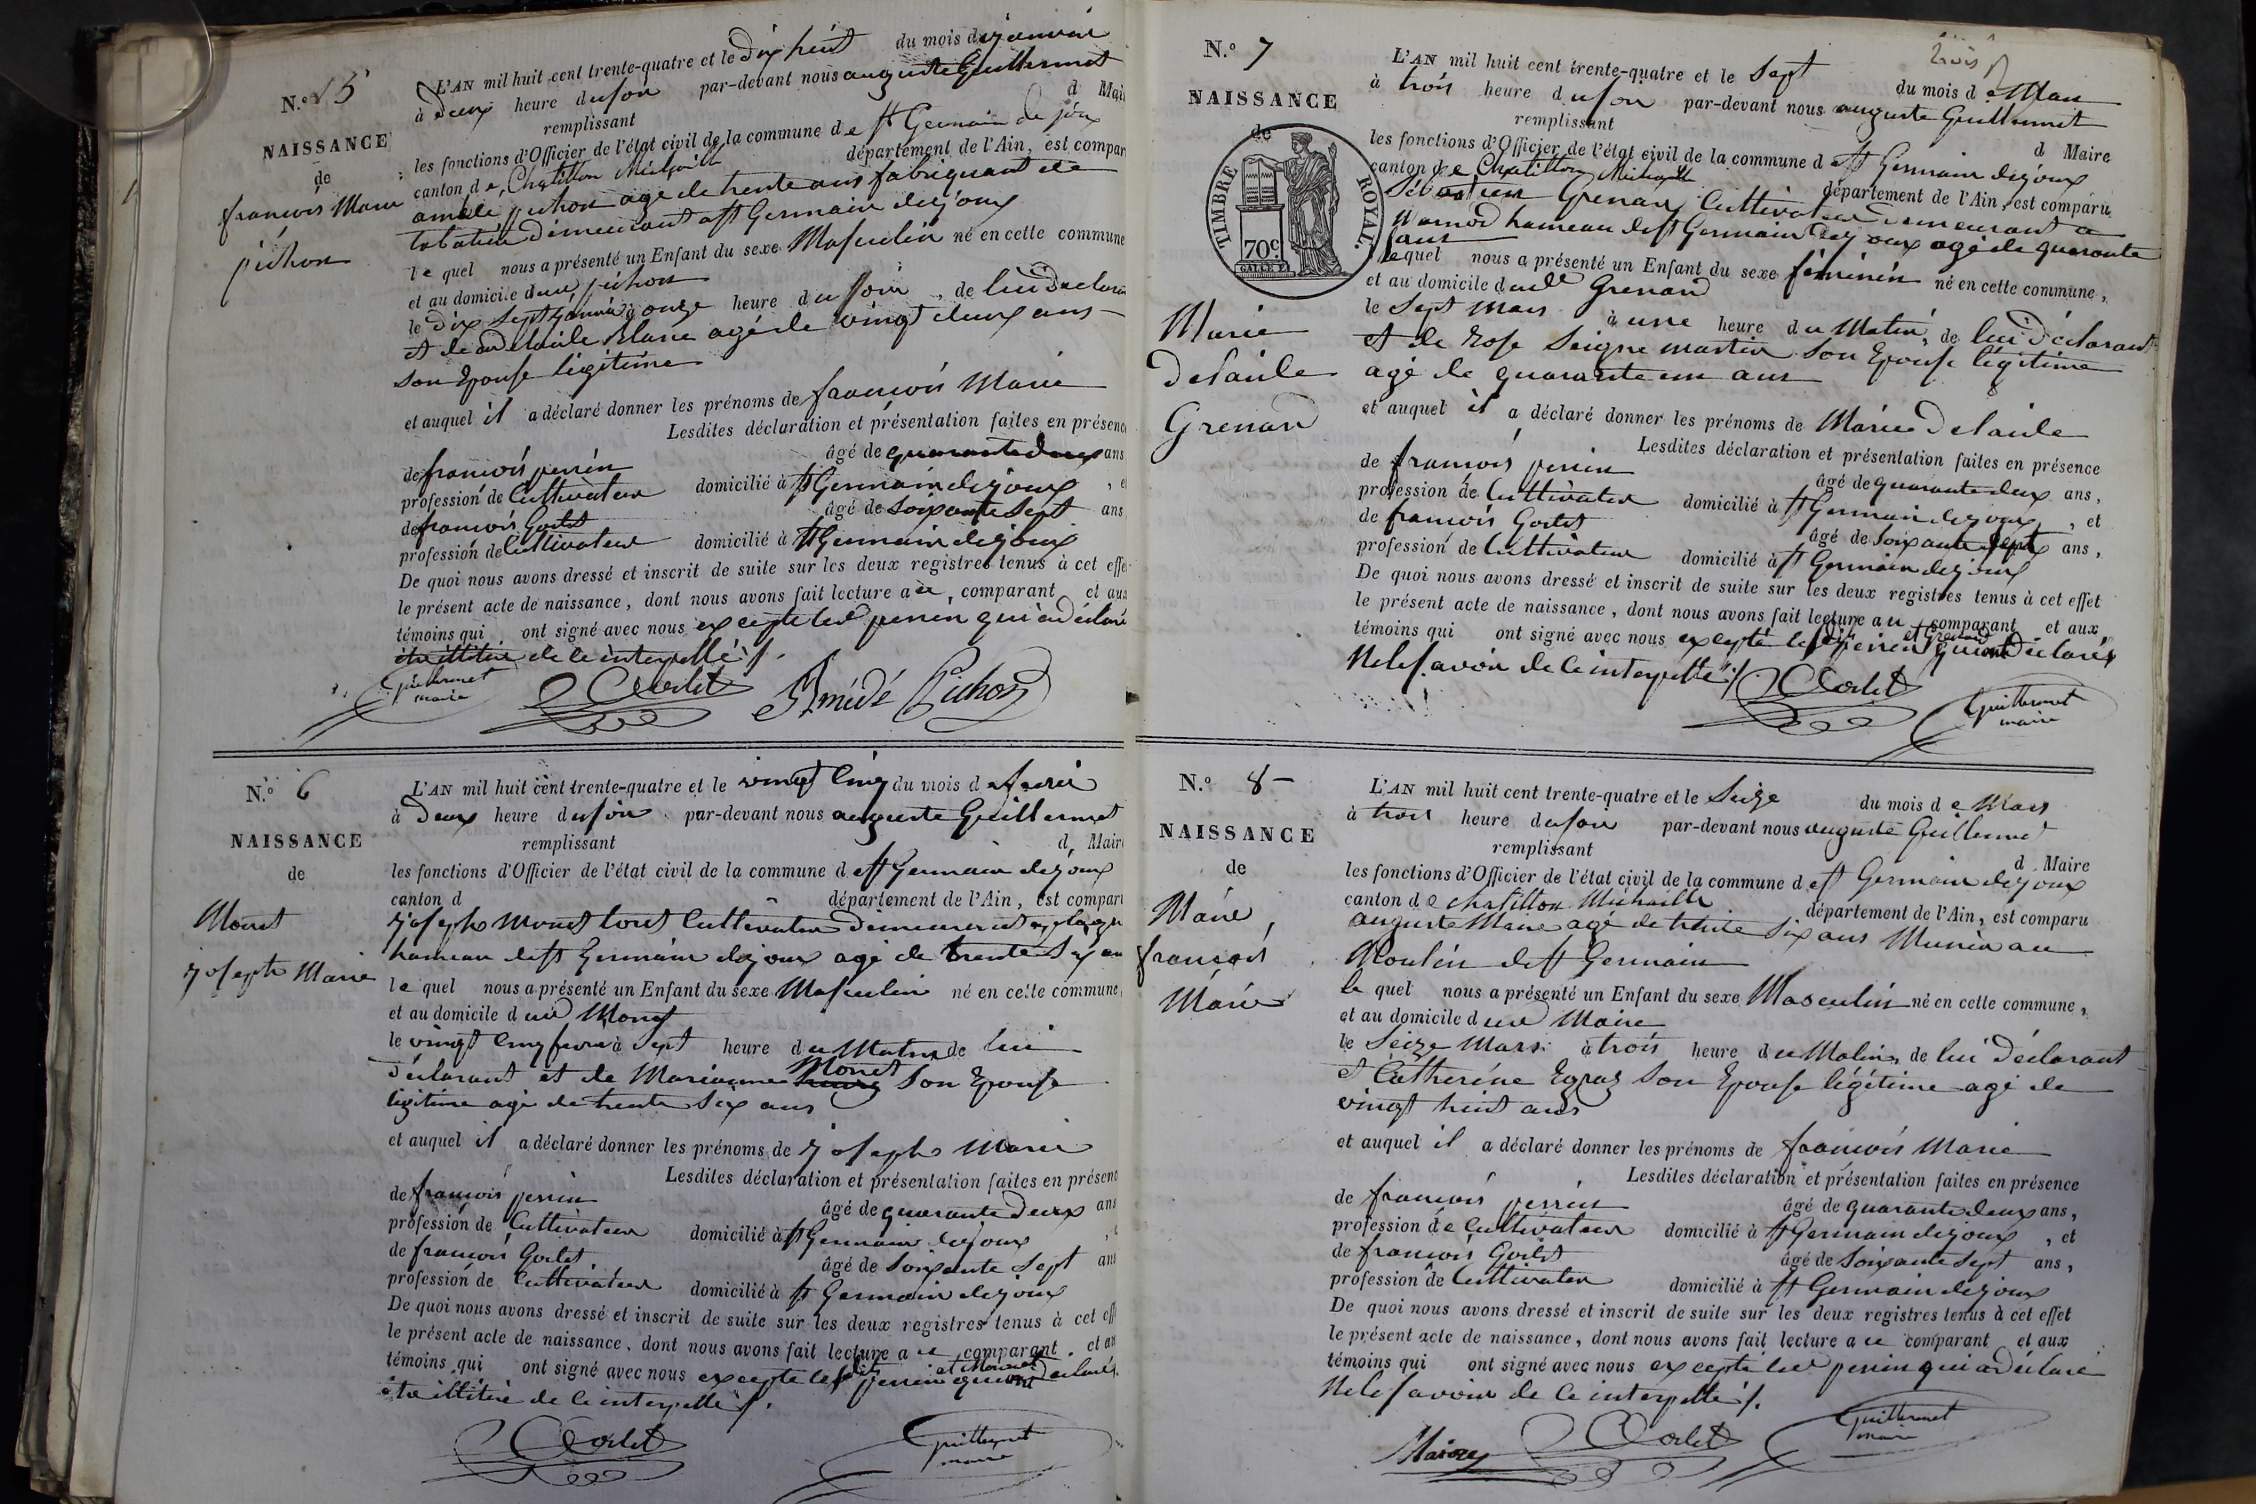 N.º 5
NAISSANCE
de
françois Marie
pichon
L'AN mil huit cent trente-quatre et le dix huit du mois de janvier
à deux heure du soir par-devant nous auguste Guillermet
remplissant d Mai
les fonctions d'Officier de l'état civil de la commune de st Germain de joux
canton de Chatillon Michaille département de l'Ain, est compar
amédé pichon agé de trente ans fabriquant de
tabatière demeurant a st Germain dejoux
le quel nous a présenté un Enfant du sexe Masculin né en cette commune
et au domicile dud pichon
le dix sept janvier à onze heure du soir, de lui déclaran
et de adelaide Blanc agé de vingt deux ans
son Epouse légitime
et auquel il a déclaré donner les prénoms de françois Marie
Lesdites déclaration et présentation faites en présenc
de françois perrin âgé de quarante deux ans
profession de Cultivateur domicilié à st Germain dejoux, e
de françois Godet âgé de soixante sept ans
profession de Cultivateur domicilié à st Germain dejoux
De quoi nous avons dressé et inscrit de suite sur les deux registres tenus à cet effe
le présent acte de naissance, dont nous avons fait lecture au comparant et aux
témoins qui ont signé avec nous excepté led perrin qui a déclaré
être illitéré de ce interpellé ./.
Guillermet
maire
Godet
Amédé Pichon
N.º 6
NAISSANCE
de
Monet
joseph Marie
L'AN mil huit cent trente-quatre et le vingt cinq du mois de fevrié
à deux heure du soir par-devant nous auguste Guillermet
remplissant d Mair
les fonctions d'Officier de l'état civil de la commune de st Germain dejoux
canton d département de l'Ain, est compar
joseph Monet Cultivateur demeurant
hameau de st Germain dejoux agé de trente six an
le quel nous a présenté un Enfant du sexe Masculin né en cette commune,
et au domicile dud Monet
le vingt cinq fevrié à sept heure du Matin de lui
déclarant et de Marianne Monet son Epouse
légitime agé de trente six ans
et auquel il a déclaré donner les prénoms de joseph Marie
Lesdites déclaration et présentation faites en présenc
de françois perrin âgé de quarante deux ans
profession de Cultivateur domicilié à st Germain dejoux
de françois Godet âgé de soixante sept ans
profession de Cultivateur domicilié à st Germain dejoux
De quoi nous avons dressé et inscrit de suite sur les deux registres tenus à cet eff
le présent acte de naissance, dont nous avons fait lecture au comparant et au
témoins qui ont signé avec nous excepté lesdit perrin et Monnet qui ont déclarés
être illitéré de ce interpellé ./.
Godet
Guillermet
maire
trois
N.º 7
NAISSANCE
de
TIMBRE ROYAL.
70c.
Marie
delaide
Grenard
L'AN mil huit cent trente-quatre et le sept du mois de Mars
à trois heure du soir par-devant nous auguste Guillermet
remplissant d Maire
les fonctions d'Officier de l'état civil de la commune de st Germain dejoux
canton de Chatillon Michaille département de l'Ain, est comparu
Sébastien Grenard Cultivateur demeurant a
hameau de st Germain dejoux agé de quarante
ans
lequel nous a présenté un Enfant du sexe féminin né en cette commune,
et au domicile dudt Grenard
le sept mars à une heure du Matin, de lui déclarant
et de Rose Seigne martin son Epouse légitime
agé de quarante un ans
et auquel il a déclaré donner les prénoms de Marie delaide
Lesdites déclaration et présentation faites en présence
de françois perrin âgé de quarante deux ans,
profession de Cultivateur domicilié à st Germain dejoux, et
de françois Godet âgé de soixante sept ans,
profession de Cultivateur domicilié à st Germain dejoux
De quoi nous avons dressé et inscrit de suite sur les deux registres tenus à cet effet
le présent acte de naissance, dont nous avons fait lecture au comparant et aux
témoins qui ont signé avec nous excepté lesdit perrin et Grenard qui ont déclarés
ne le savoir de ce interpellé ./.
Godet
Guillermet
maire
N.º 8
NAISSANCE
de
Maire,
françois
Marie
L'AN mil huit cent trente-quatre et le Seize du mois de Mars
à trois heure du soir par-devant nous auguste Guillermet
remplissant d Maire
les fonctions d'Officier de l'état civil de la commune de st Germain dejoux
canton de Chatillon Michaille département de l'Ain, est comparu
auguste Maire agé de trente six ans Munier au
Moulin de st Germain
le quel nous a présenté un Enfant du sexe Masculin né en cette commune,
et au domicile dud Maire
le Seize Mars à trois heure du Matin, de lui déclarant
et Catherine Egraz son Epouse légitime agé de
vingt huit ans
et auquel il a déclaré donner les prénoms de françois Marie
Lesdites déclaration et présentation faites en présence
de françois perrin âgé de quarante deux ans,
profession de Cultivateur domicilié à st Germain dejoux, et
de françois Godet âgé de Soixante sept ans,
profession de Cultivateur domicilié à st Germain dejoux
De quoi nous avons dressé et inscrit de suite sur les deux registres tenus à cet effet
le présent acte de naissance, dont nous avons fait lecture au comparant et aux
témoins qui ont signé avec nous excepté led perrin qui a déclaré
ne le savoir de ce interpellé ./.
Godet
Guillermet
maire